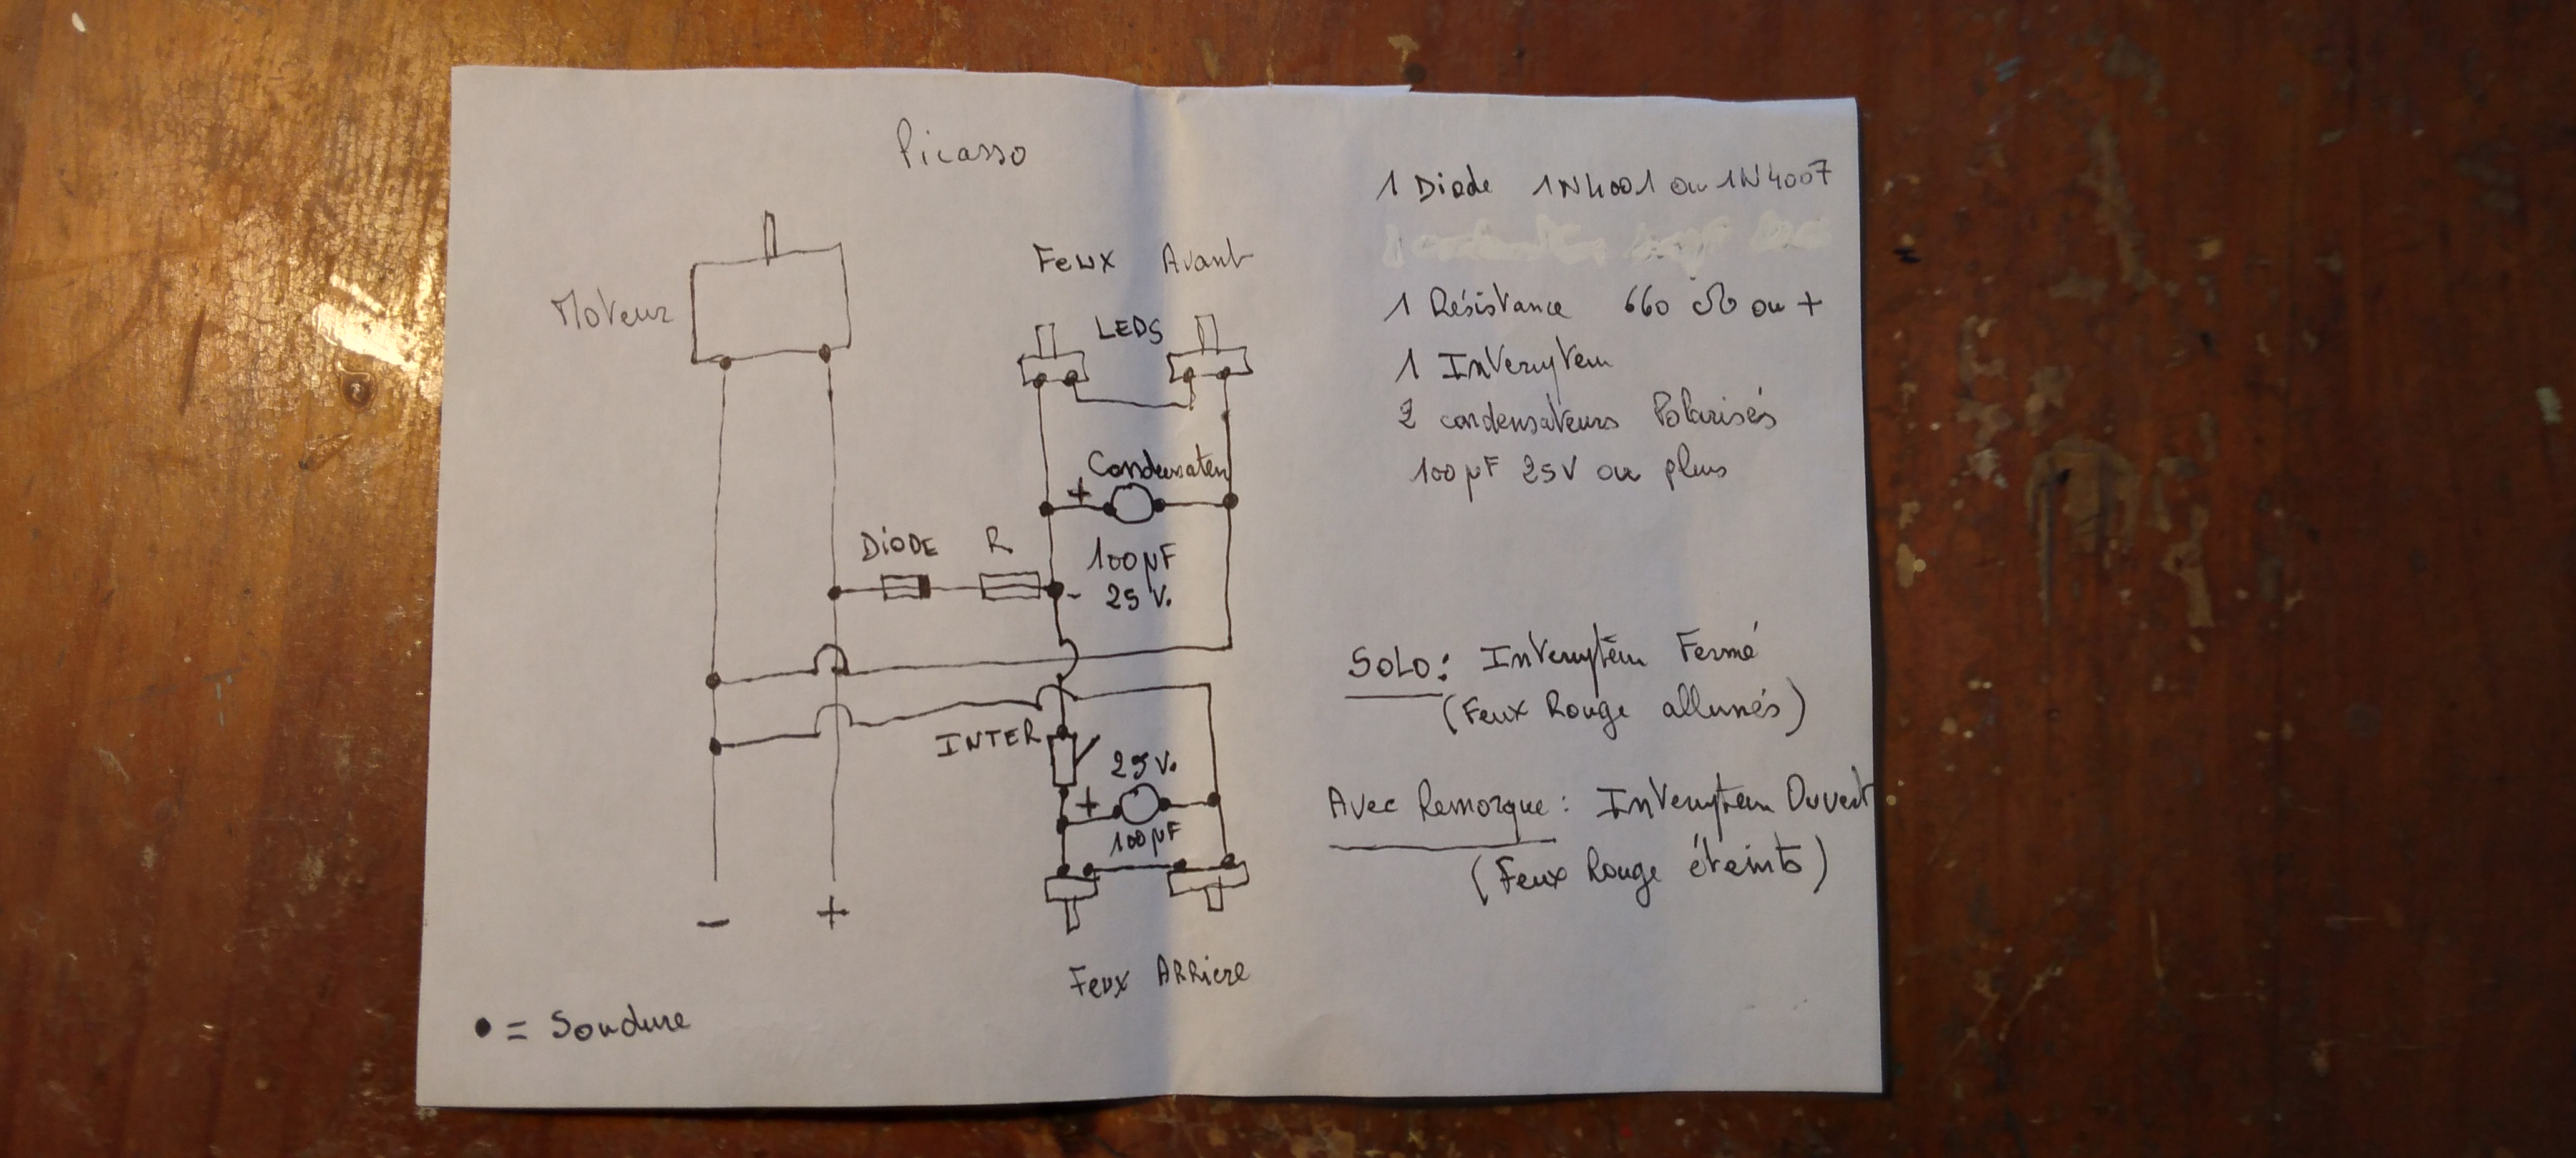 Picasso
Moteur
Feux Avant
LEDS
Condensateu
+
DiODE R
100 µF
25 V.
-
INTER
25 V.
+
100 µF
- +
Feux ARRiere
• = Soudure
1 Diode 1N4001 ou 1N4007
1 Résistance 660 Ω ou +
1 Interrupteur
2 condensateurs Polarisés
100 µF 25V ou plus
SOLO: Interrupteur Fermé
(Feux Rouge allumés)
Avec Remorque: Interrupteur Ouvert
(Feux Rouge éteints)